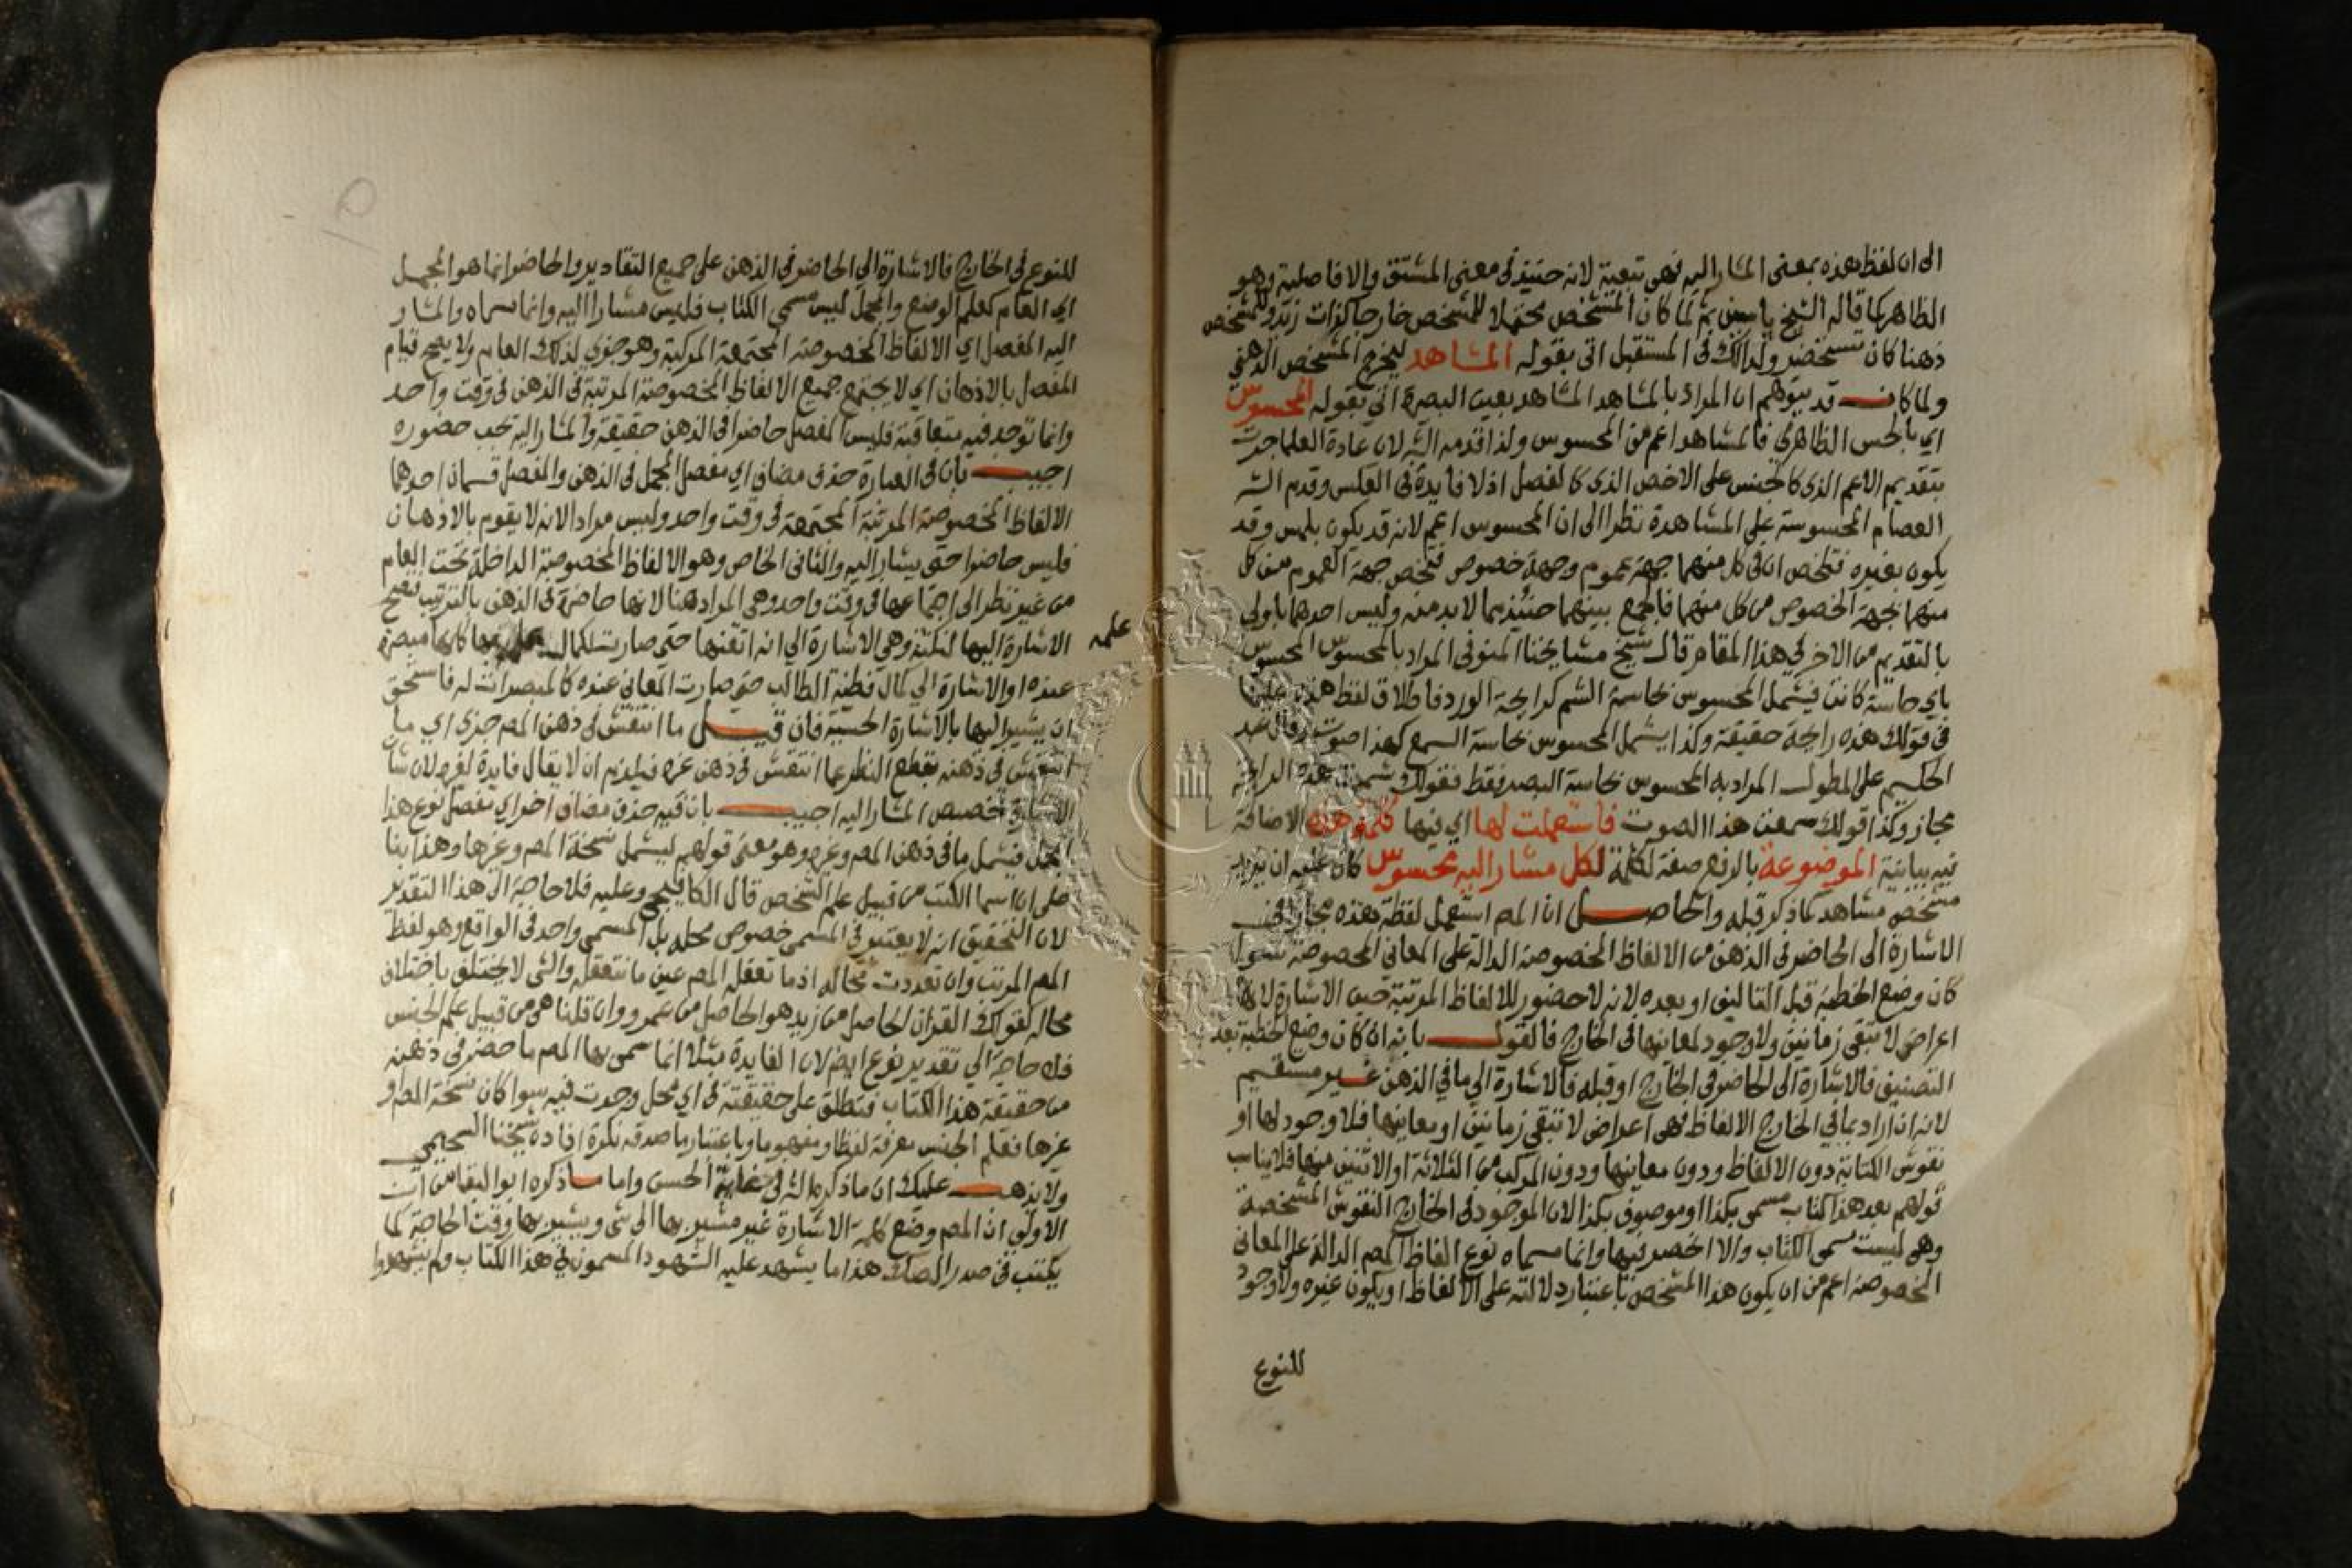 الى ان لفظ هذه بمعنى المشار اليه فهى تبعية لانه حينئذ فى معنى المشتق والا فاصلية وهو
الظاهر كما قاله الشيخ ياسين ثم لما كان المشخص محتملا للمشخص خارجا كذات زيد وللمشخص
ذهنا كان تستحضر ولدا لك فى المستقبل اتى بقوله المشاهد ليخرج المشخص الذهنى
ولما كان قد يتوهم ان المراد بالمشاهد المشاهد بعين البصيرة اتى بقوله المحسوس
اي بالحس الظاهرى فالمشاهد اعم من المحسوس ولذا قدمه الش لان عادة العلما جرت
بتقديم الاعم الذى كالجنس على الاخص الذى كالفصل اذ لا فايدة فى العكس وقدم الش
العصام المحسوسة على المشاهدة نظرا الى ان المحسوس اعم لانه قد يكون بلمس وقد
يكون بغيره فتلخص ان فى كل منهما جهة عموم وجهة خصوص فتخص جهة العموم من كل
منهما بجهة الخصوص من كل منهما فالجمع بينهما حينئذ مما لابد منه وليس احدهما باولى
بالتقديم من الاخر فى هذا المقام قال شيخ مشايخنا المنوفى المراد بالمحسوس المحسوس
باي حاسة كانت فيشمل المحسوس بحاسة الشم كرايحة الورد فاطلاق لفظ هذه عليها
فى قولك هذه رايحة حقيقة وكذا يشمل المحسوس بحاسة السمع كهذا صوت وقال عبد
الحكيم على المطول المراد به المحسوس بحاسة البصر فقط فقولك شممت هذه الرايحة
مجاز وكذا قولك سمعت هذا الصوت فاستعملت لها اي فيها كلمة هذه الاضافة
فيه بيانية الموضوعة بالرفع صفة لكلمة لكل مشار اليه محسوس كان عليه ان يزيد
مشخص مشاهد كما ذكر قبله والحاصل ان المص استعمل لفظة هذه مجازا فى
الاشارة الى الحاضر فى الذهن من الالفاظ المخصوصة الدالة على المعانى المخصوصة سوا
كان وضع الخطبة قبل التاليف او بعده لانه لا حضور للالفاظ المرتبة حين الاشارة لانها
اعراض لا تبقى زمانين ولا وجود لمعانيها فى الخارج فالقول بانه ان كان وضع الخطبة بعد
التصنيف فالاشارة الى الحاضر فى الخارج او قبله فالاشارة الى ما فى الذهن غير مستقيم
لانه ان اراد بما فى الخارج الالفاظ فهى اعراض لا تبقى زمانين او معانيها فلا وجود لها او
نقوش الكتابة دون الالفاظ ودون معانيها ودون المركب من الثلاثة او الاثنين منها فلا يناسب
قولهم بعد هذا كتاب مسمى بكذا او موصوف بكذا لان الموجود فى الخارج النقوش المشخصة
وهى ليست مسمى الكتاب والا انحصر فيها وانما مسماه نوع الفاظ المص الدالة على المعانى
المخصوصة اعم من ان يكون هذا المشخص باعتبار دلالته على الالفاظ او يكون غيره ولا وجود
للنوع
للنوع فى الخارج فالاشارة الى الحاضر فى الذهن على جميع التقادير والحاضر انما هو المجمل
اي العام كعلم الوضع والمجمل ليس مسمى الكتاب فليس مشارا اليه وانما مسماه والمشار
اليه المفصل اي الالفاظ المخصوصة المجتمعة المركبة وهو جزءي لذلك العام ولا يصح قيام
المفصل بالاذهان اي لا يجتمع جميع الالفاظ المخصوصة المرتبة فى الذهن فى وقت واحد
وانما توجد فيه متعاقبة فليس المفصل حاضرا فى الذهن حقيقة والمشار اليه يجب حضوره
اجيب بان فى العبارة حذف مضاف اي مفصل المجمل فى الذهن والمفصل قسمان احدهما
الالفاظ المخصوصة المرتبة المجتمعة فى وقت واحد وليس مرادا لانه لا يقوم بالاذهان
فليس حاضرا حتى يشار اليه والثانى الخاص وهو الالفاظ المخصوصة الداخلة تحت العام
من غير نظر الى اجتماعها فى وقت واحد وهى المراد هنا لانها حاضرة فى الذهن بالترتيب فصح
الاشارة اليها لنكتة وهى الاشارة الى انه اتقنها حتى صارت لكمال علمه بها كانها مبصرة
علمه
عنده او الاشارة الى كمال فطنة الطالب حتى صارت المعانى عنده كالمبصرات له فاستحق
ان يشير اليها بالاشارة الحسية فان قيل ما انتقش فى ذهن المص جزى اي ما
انتقش فى ذهنه بقطع النظر عما انتقش فى ذهن غيره فيلزم ان لا يقال فايدة لغيره لان شان
الاشارة تخصيص المشار اليه اجيب بان فيه حذف مضاف اخر اي مفصل نوع هذا
المجمل فيشمل ما فى ذهن المص وغيره وهو معنى قولهم ليشمل نسخة المص وغيرها وهذا بنا
على ان اسما الكتب من قبيل علم الشخص قال الكافيجى وعليه فلا حاجة الى هذا التقدير
لان التحقيق انه لا يعتبر فى المسمى خصوص محله بل المسمى واحد فى الواقع وهو لفظ
المص المرتب وان تعددت محاله اذ ما تعقل المص عين ما نتعقل والشى لا يختلف باختلاف
محاله كقولك القران الحاصل من زيد هو الحاصل من عمرو وان قلنا هى من قبيل علم الجنس
فلا حاجة الى تقدير نوع ايضا لان الفايدة مثلا انما سمى بها المص ما حضر فى ذهنه
من حقيقة هذا الكتاب فتطلق على حقيقته فى اي محل وجدت فيه سوا كان نسخة المص او
غيرها فعلم الجنس معرفة لفظا ومفهوما وباعتبار ما صدقه نكرة افاده شيخنا السجيمى
ولا يذهب عليك ان ما ذكره الش فى غاية الحسن واما ما ذكره ابو البقا من ان
الاولى ان المص وضع كلمة الاشارة غير مشير بها الى شى ويشير بها وقت الحاجة كما
يكتب فى صدر الصك هذا ما يشهد عليه الشهود المسمون فى هذا الكتاب ولم يشهدوا